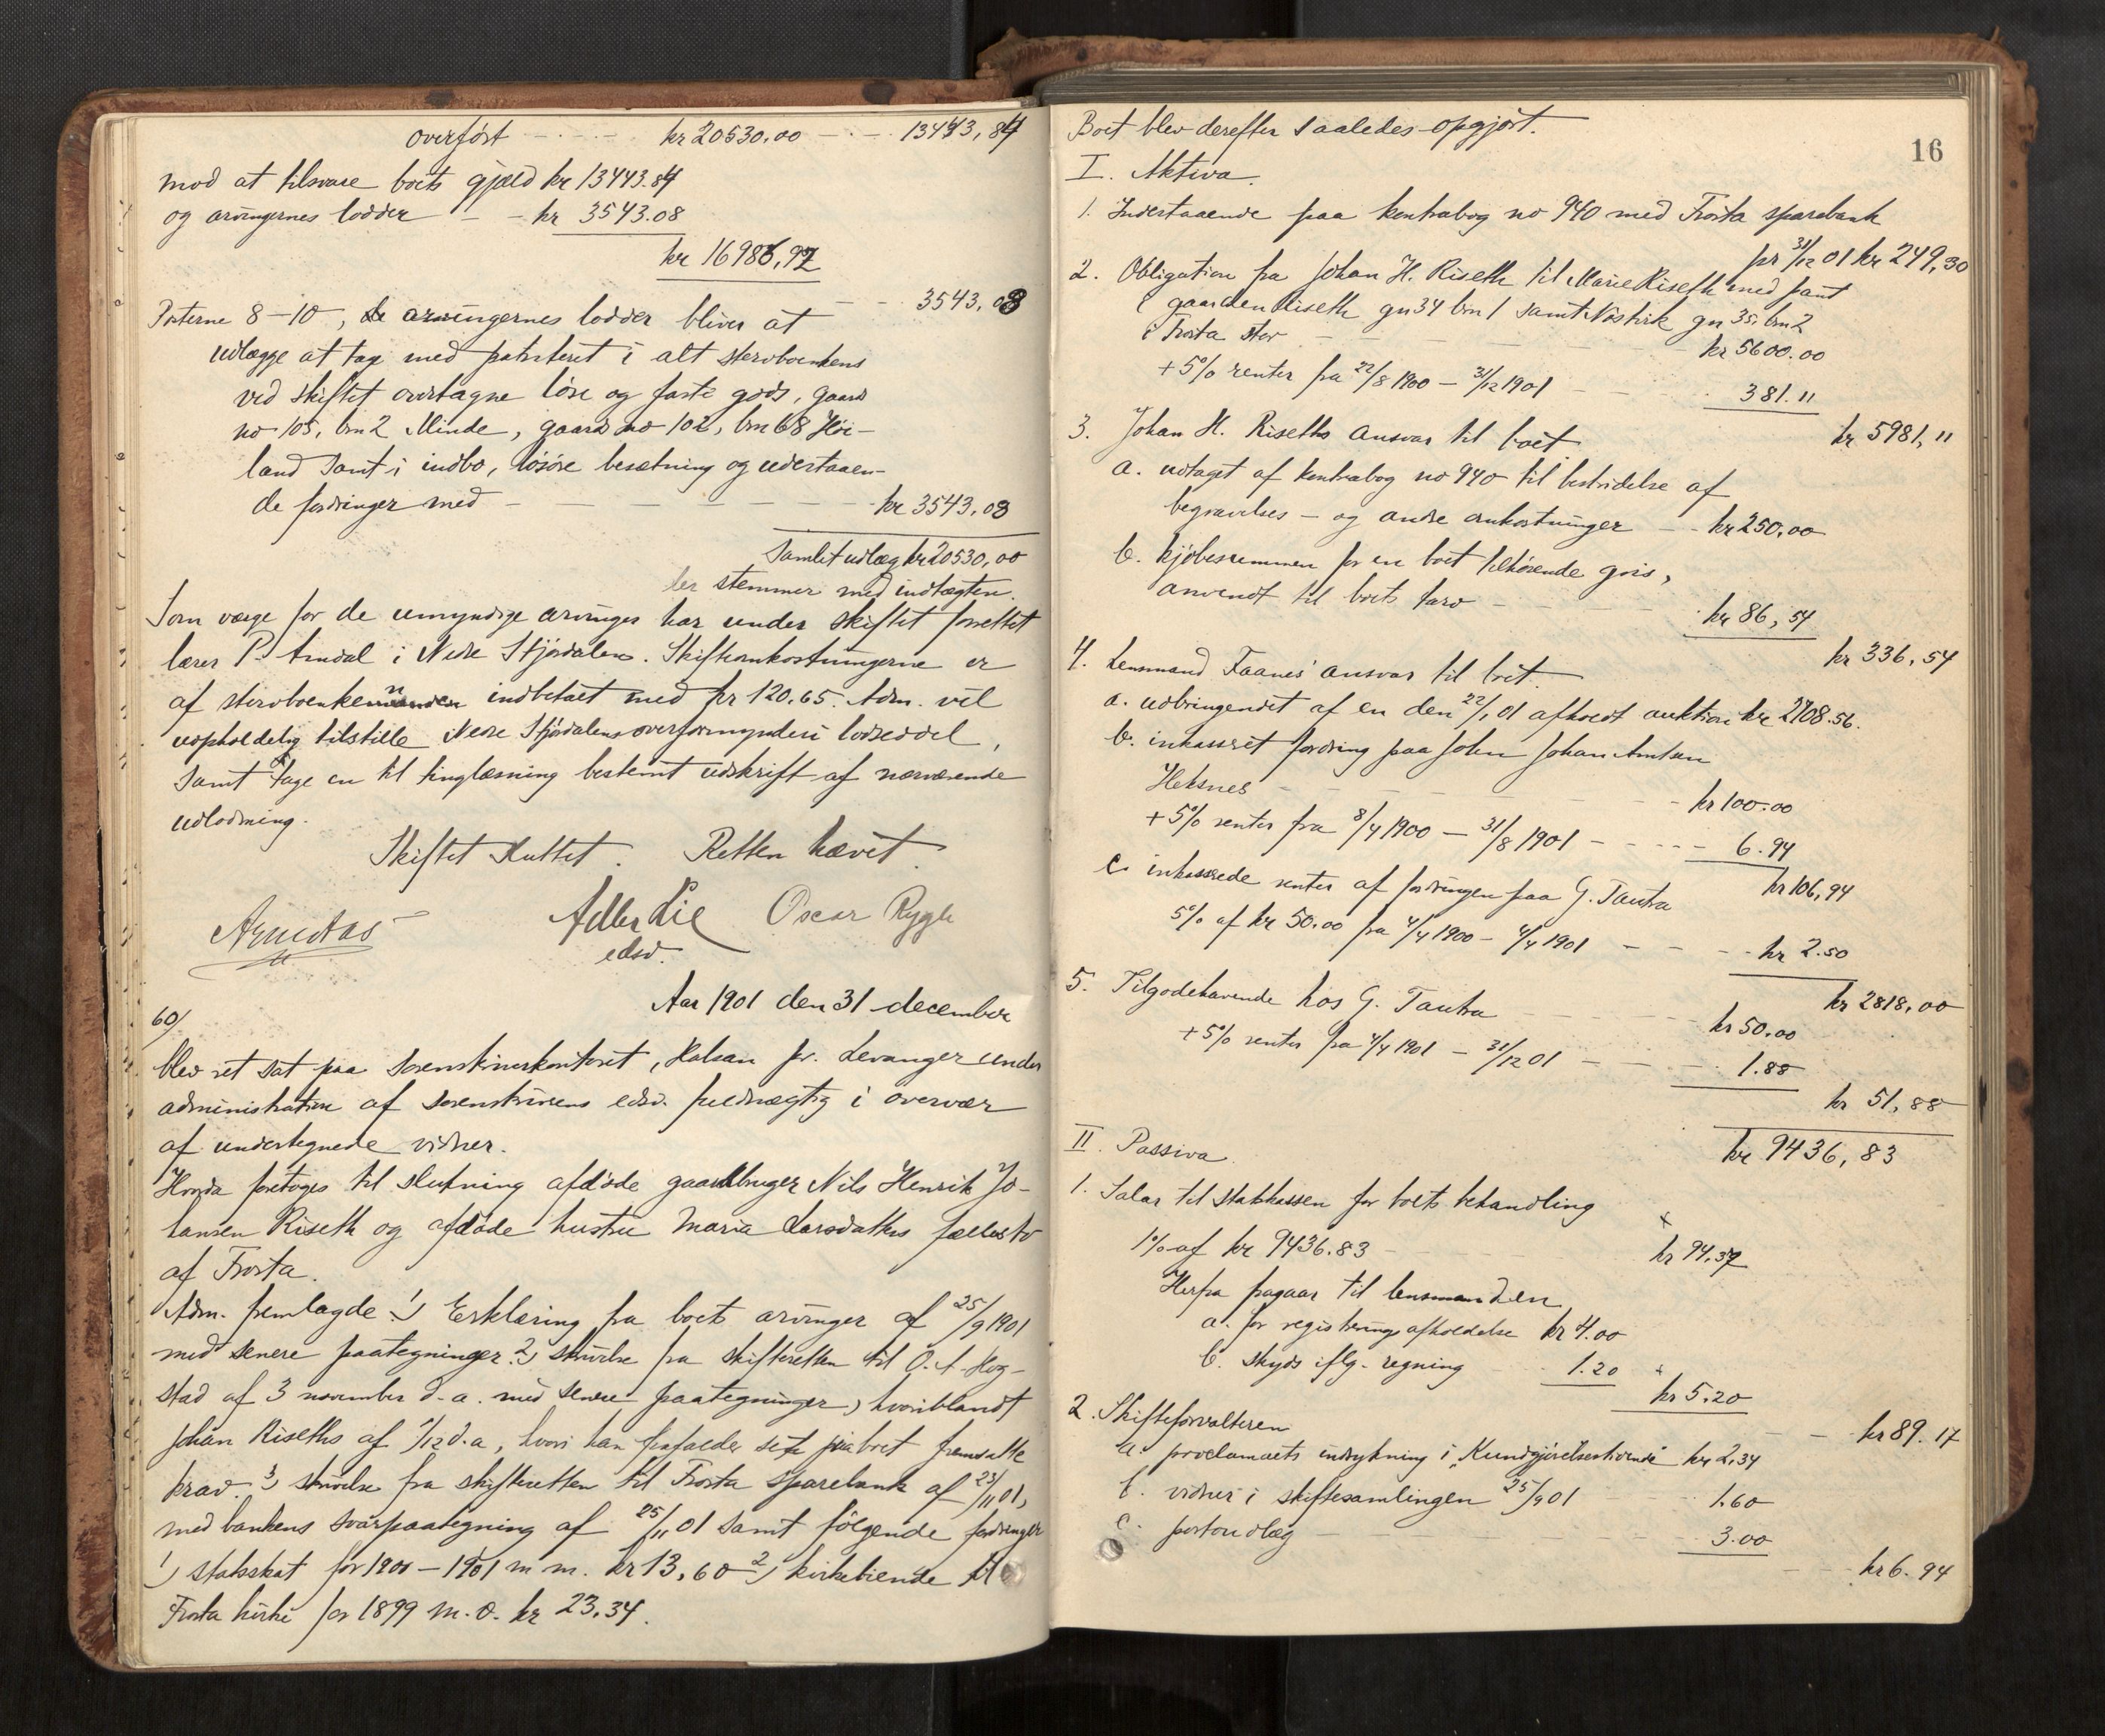 overført — kr 20530.00 — 13443,84
mod at tilsvare boets gjæld kr 13443.84
og arvingernes lodder — kr 3543.08
kr 16986,92
— 3543,08
Posterne 8-10, de arvingernes lodder bliver at
udlægge at tage med panteret i alt stervboenkens
ved skiftet overtagne løse og faste gods, gaards
no 105, brn 2 Minde, gaards no 102, brn 68 Høi-
land samt i indbo, løsøre besætning og udestaaen-
de fordringer med — kr 3543,08
Samlet udlæg kr 20530,00
der stemmer med indtægten.
Som værge for de umyndige arvinger har under skiftet forrettet
lærer P. Arndal i Nedre Stjørdalen. Skifteomkostningerne er
af stervboenken indbetalt med kr 120.65. Adm. vil
uopholdelig tilstille Nedre Stjørdalens overformynderi lodseddel,
samt tage en til tinglæsning bestemt udskrift af nærværende
udlodning.
Skiftet sluttet. Retten hævet.
Adler Lie Oscar Rygh
edsv.
Aar 1901 den 31 december
60/
blev ret sat paa sorenskriverkontoret, Halsan pr. Levanger under
administration af sorenskriverens edsv. fuldmægtig i overvær
af undertegnede vidner.
Hvorda foretoges til slutning afdøde gaardbruger Nils Henrik Jo-
hansen Riseth og afdøde hustru Maria Larsdatters fællesbo
af Frosta.
Adm. fremlagde 1) Erklæring fra boets arvinger af 25/9 1901
med senere paategninger 2) skrivelse fra skifteretten til O. A. Hog-
stad af 3 november d.a. med senere paategninger, hvoriblandt
Johan Riseths af 7/12 d.a, hvori han frafalder sit paa boet fremsatte
krav. 3) skrivelse fra skifteretten til Frosta sparebank af 23/11 01,
med bankens svarpaategning af 25/11 01 samt følgende fordringer
1) statsskat for 1900-1901 m m. kr 13,60 2) kirketiende til
Frosta kirke for 1899 m.v. kr 23.34.
16
Boet blev derefter saaledes opgjort.
I. Aktiva.
1. Indestaaende paa kontrabog no 940 med Frosta sparebank
pr 31/12 01 kr 249,30
2. Obligation fra Johan H. Riseth til Marie Riseth med pant
i gaarden Riseth gn 34 brn 1 samt gn 35, brn 2
i Frosta stor — kr 5600.00
+ 5% renter fra 22/8 1900 — 31/12 1901 — 381.11
kr 5981,11
3. Johan H. Riseths ansvar til boet.
a. udtaget af kontrabog no 940 til bestridelse af
begravelses- og andre omkostninger — kr 250,00
b. kjøbesummen for en boet tilhørende gris,
anvendt til boets tarv — kr 86,54
kr 336,54
4. Lensmand Faanes' ansvar til boet.
a. udbringendet af en den 22/1 01 afholdt auktion kr 2708.56.
b. inkasseret fordring paa John Johan Arntsen
Heksnes — kr 100.00
+ 5% renter fra 8/4 1900 — 31/8 1901 — 6.94
kr 106,94
c. inkasserede renter af fordringen paa G. Tautra
5% af kr 50.00 fra 4/4 1900 - 4/4 1901 — kr 2.50
kr 2818,00
5. Tilgodehavende hos G. Tautra — kr 50,00
+ 5% renter fra 4/4 1901 — 31/12 01 — 1.88
kr 51,88
kr 9436,83
II. Passiva.
1. Salær til statskassen for boets behandling
1% af kr 9436.83 — kr 94.37
Herfra fragaar til lensmanden
a. for registreringsafholdelse kr 4.00
b. skyds iflg. regning 1.20
kr 5.20
— kr 89.17
2. Skifteforvalteren
a. proclamaets indrykning i "Kundgjørelsestidende" kr 2,34
b. vidner i skiftesamlingen 25/9 01 1.60
c. portoudlæg — 3.00
— kr 6.94